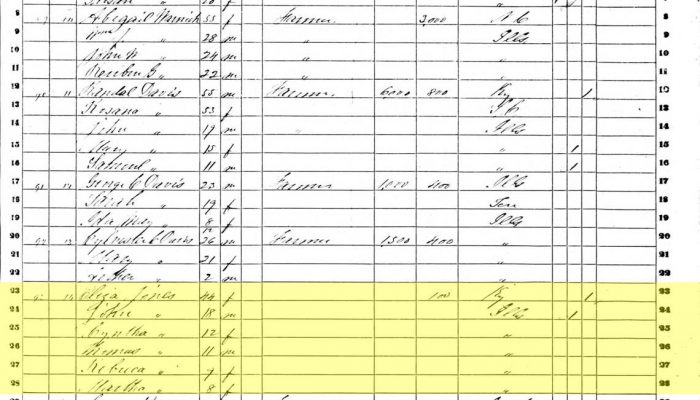 8 Abigail 55 f Farmer 3,000 N C 8
9 Wm J " 28 m " Ills 9
10 John " 24 m " " 10
11 Reuben G " 22 m " " 11
12 11 Randal Davis 55 m Farmer 6000 800 Ky 1 12
13 Rosana " 53 f 13
14 John " 17 m " Ills 14
15 Mary " 15 f " 1 15
16 Samuel " 11 m " 1 16
17 12 George C Davis 23 m Farmer 400 Ills 17
18 " 19 f Ten 18
19 Ida May " f Ills 19
20 13 Davis 26 m Farmer 1,500 400 " 20
21 Mary " 21 f " 21
22 " 2 m " 22
23 14 Eliza Jones 44 f 100 Ky 1 23
24 John " 18 m Ills 1 24
25 Cyntha " 12 f " 25
26 Thomas " 11 m " 26
27 Rebeca " 9 f " 27
28 Martha " 8 f " 28